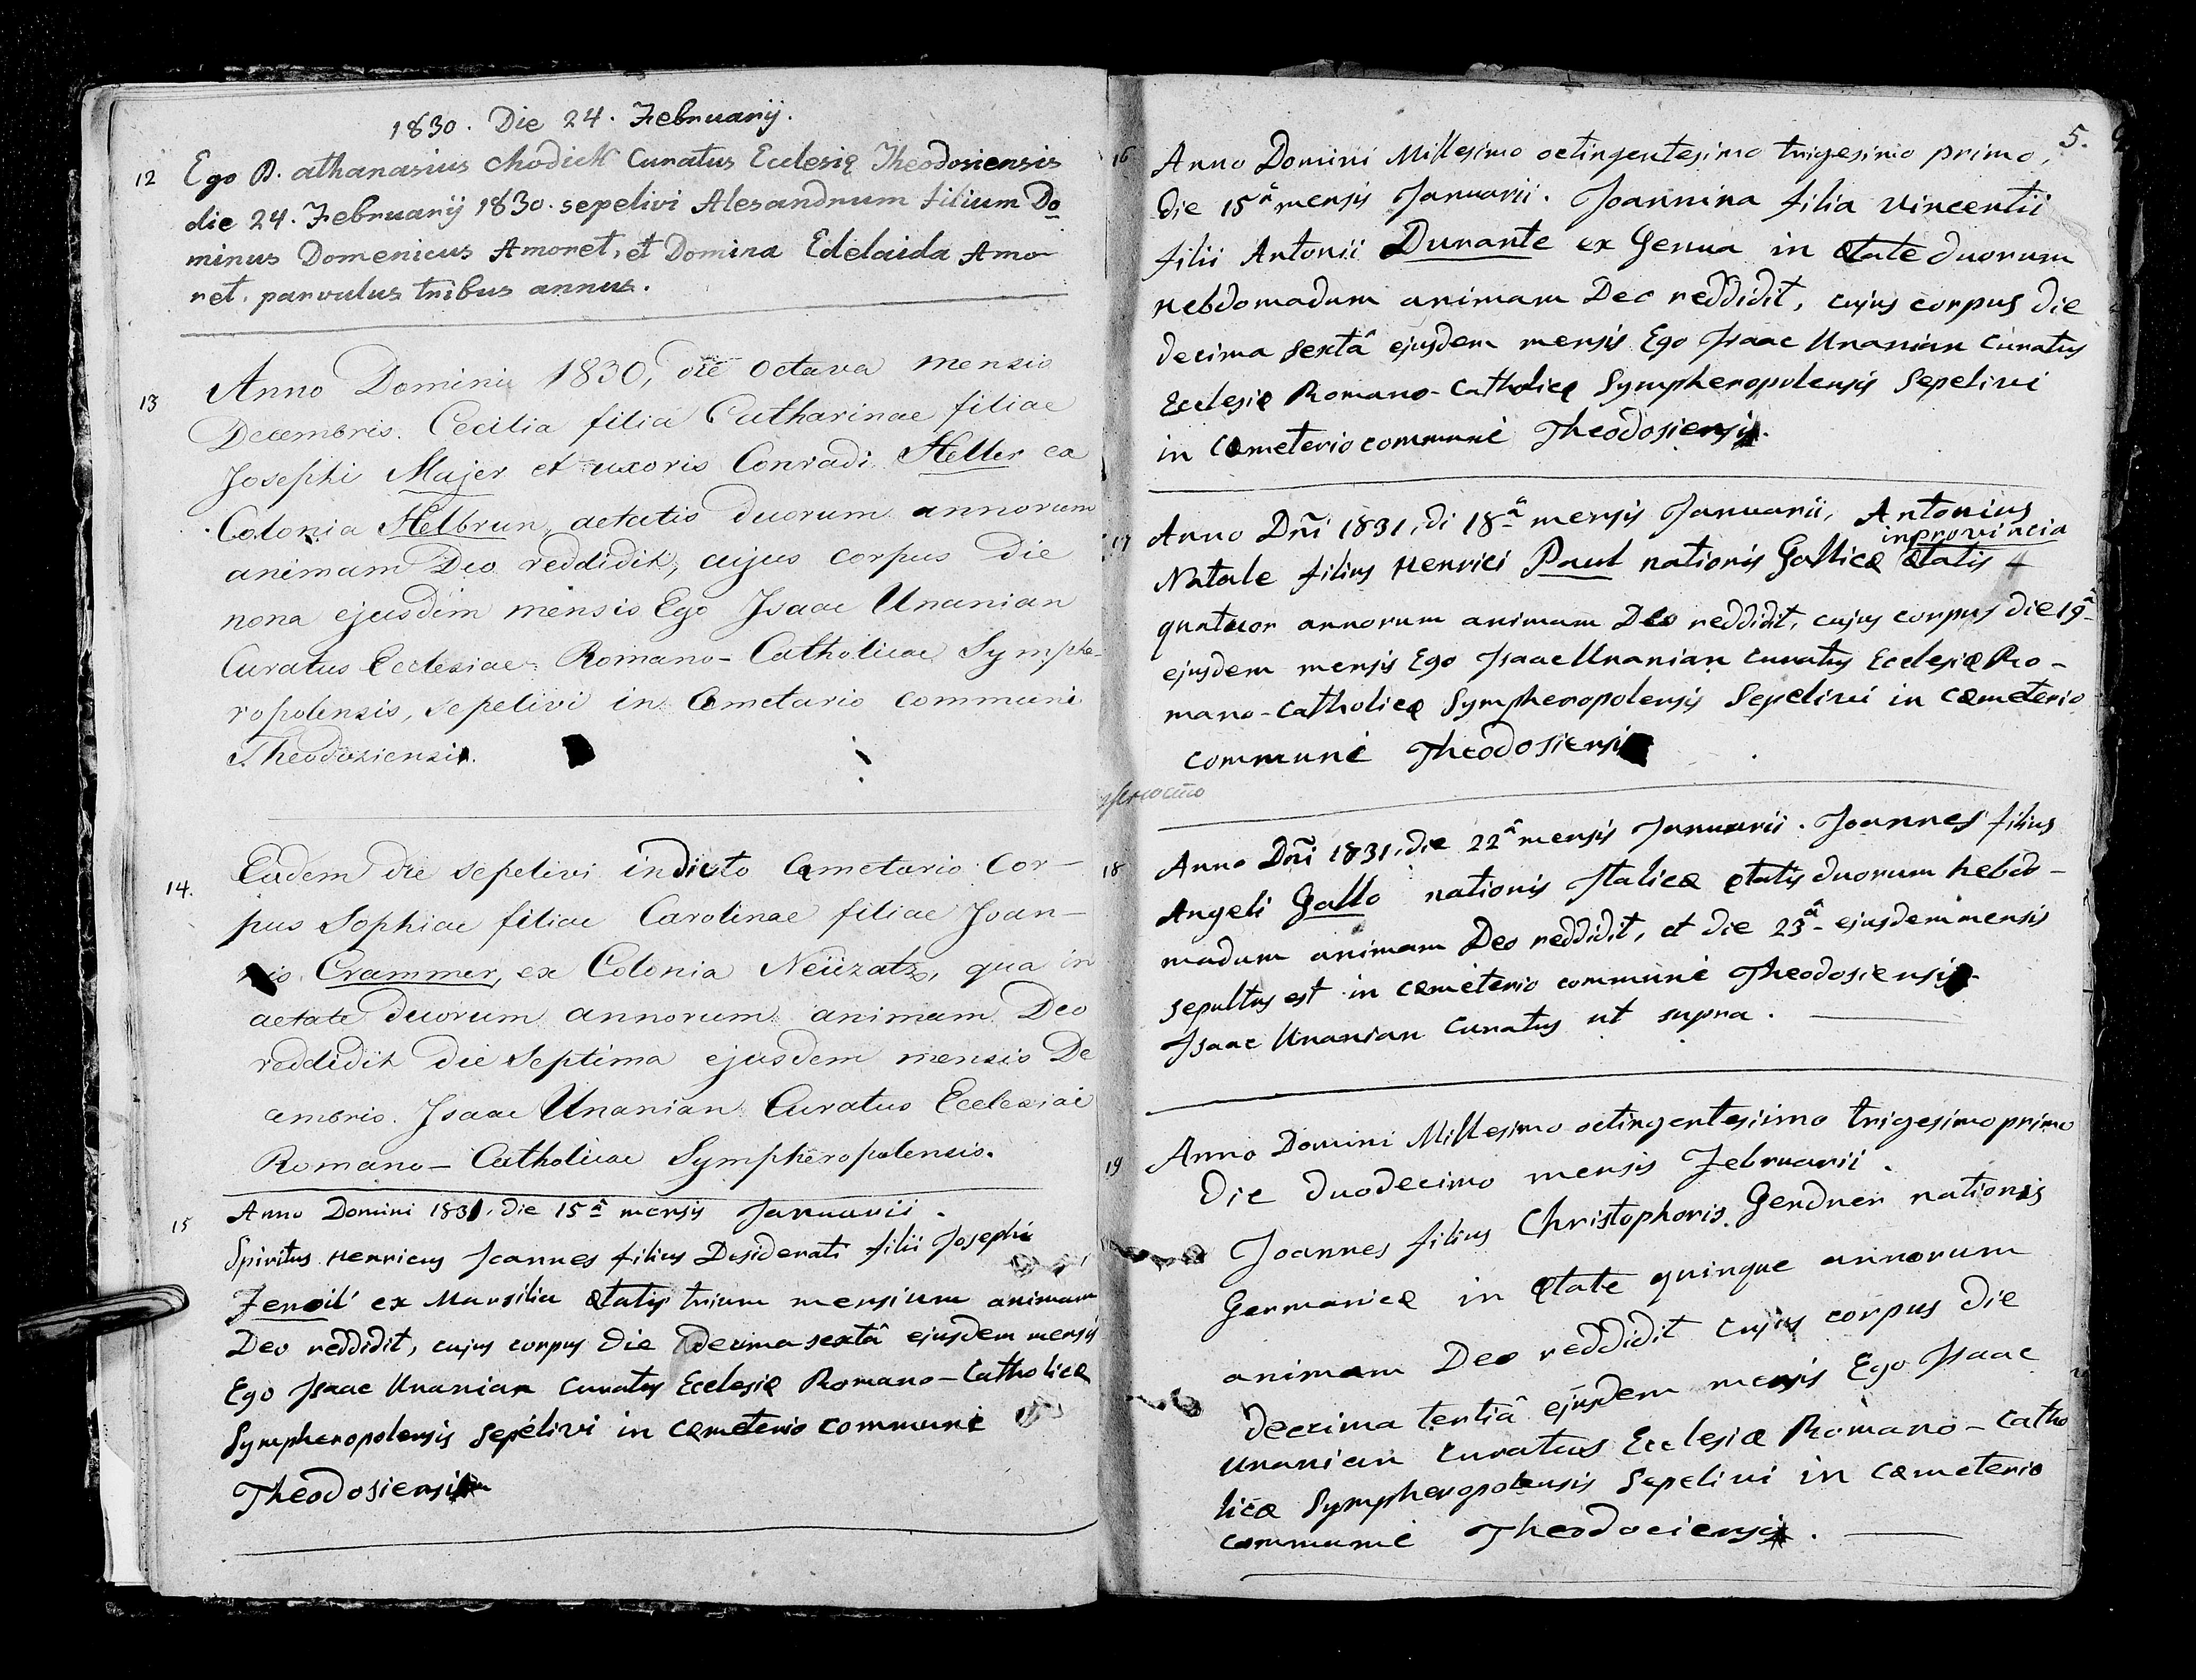 1830. Die 24. Februarij.
12 Ego P. athanasius chodick Curatus Ecclesię Theodosiensis
die 24. Februarij 1830. sepelivi Alesandrum filium Do
minus Domenicus Amoret, et Domina Edelaida Amo
ret. parvulus tribus annus.
13 Anno Domini 1830, die octava mensis
Decembris. Cecilia filia Catharinae filiae
Josephi Majer et uxoris Conradi Heller ex
Colonia Helbrun, aetatis duorum annorum
animam Deo reddidit, cujus corpus die
nona ejusdem mensis Ego Isaac Unanian
Curatus Ecclesiae Romano-Catholicae Symphe-
ropolensis, sepelivi in Cœmetario communi
Theodosiensi.
14. Eadem die sepelivi in dicto Cœmetario Cor-
pus Sophiae filiae Carolinae filiae Joan-
nis Crammer, ex Colonia Neüzatz, qua in
aetate duorum annorum animam Deo
reddidit die septima ejusdem mensis De
cembris. Isaac Unanian Curatus Ecclesiae
Romano-Catholicae Sympheropolensis.
15 Anno Domini 1831. die 15â mensis Januarii.
Spiritus Henricus Joannes filius Desiderati filii Josephi
Feroil ex Marsilia ætatis trium mensium animam
Deo reddidit, cujus corpus die decima sextâ ejusdem mensis
Ego Isaac Unanian Curatus Ecclesiæ Romano-Catholicæ
Sympheropolensis sepelivi in Cœmeterio communi
Theodosiensi
5.
16 Anno Domini Millesimo octingentesimo trigesimo primo,
die 15â mensis Januarii. Joannina filia Vincentii
filii Antonii Durante ex Genua in ætate duorum
hebdomadum animam Deo reddidit, cujus corpus die
decima sextâ ejusdem mensis Ego Isaac Unanian Curatus
Ecclesiæ Romano-Catholicæ Sympheropolensis Sepelivi
in Cœmeterio communi Theodosiensi.
17 Anno Dñi 1831, di 18â mensis Januarii, Antonius
in provincia
Natale filius Henrici Paul nationis Gallicæ ætatis
quatuor annorum animam Deo reddidit, cujus corpus die 19â
ejusdem mensis Ego Isaac Unanian Curatus Ecclesiæ Ro-
mano-Catholicæ Sympheropolensis Sepelivi in Cœmeterio
communi Theodosiensi
18 Anno Dñi 1831, die 22â mensis Januarii. Joannes filius
Angeli Gallo nationis Italicæ ætatis duorum hebdo-
madum animam Deo reddidit, et die 23â ejusdem mensis
sepultus est in Cœmeterio communi Theodosiensi
Isaac Unanian Curatus ut supra.
19 Anno Domini Millesimo octingentesimo trigesimo primo
Die duodecimo mensis Februarii.
Joannes filius Christophoris Gerdner nationis
Germanicæ in ætate quinque annorum
animam Deo reddidit cujus corpus die
decima tertiâ ejusdem mensis Ego Isaac
Unanian Curatus Ecclesiæ Romano-Catho
licæ Sympheropolensis Sepelivi in Cœmeterio
communi Theodociensi.